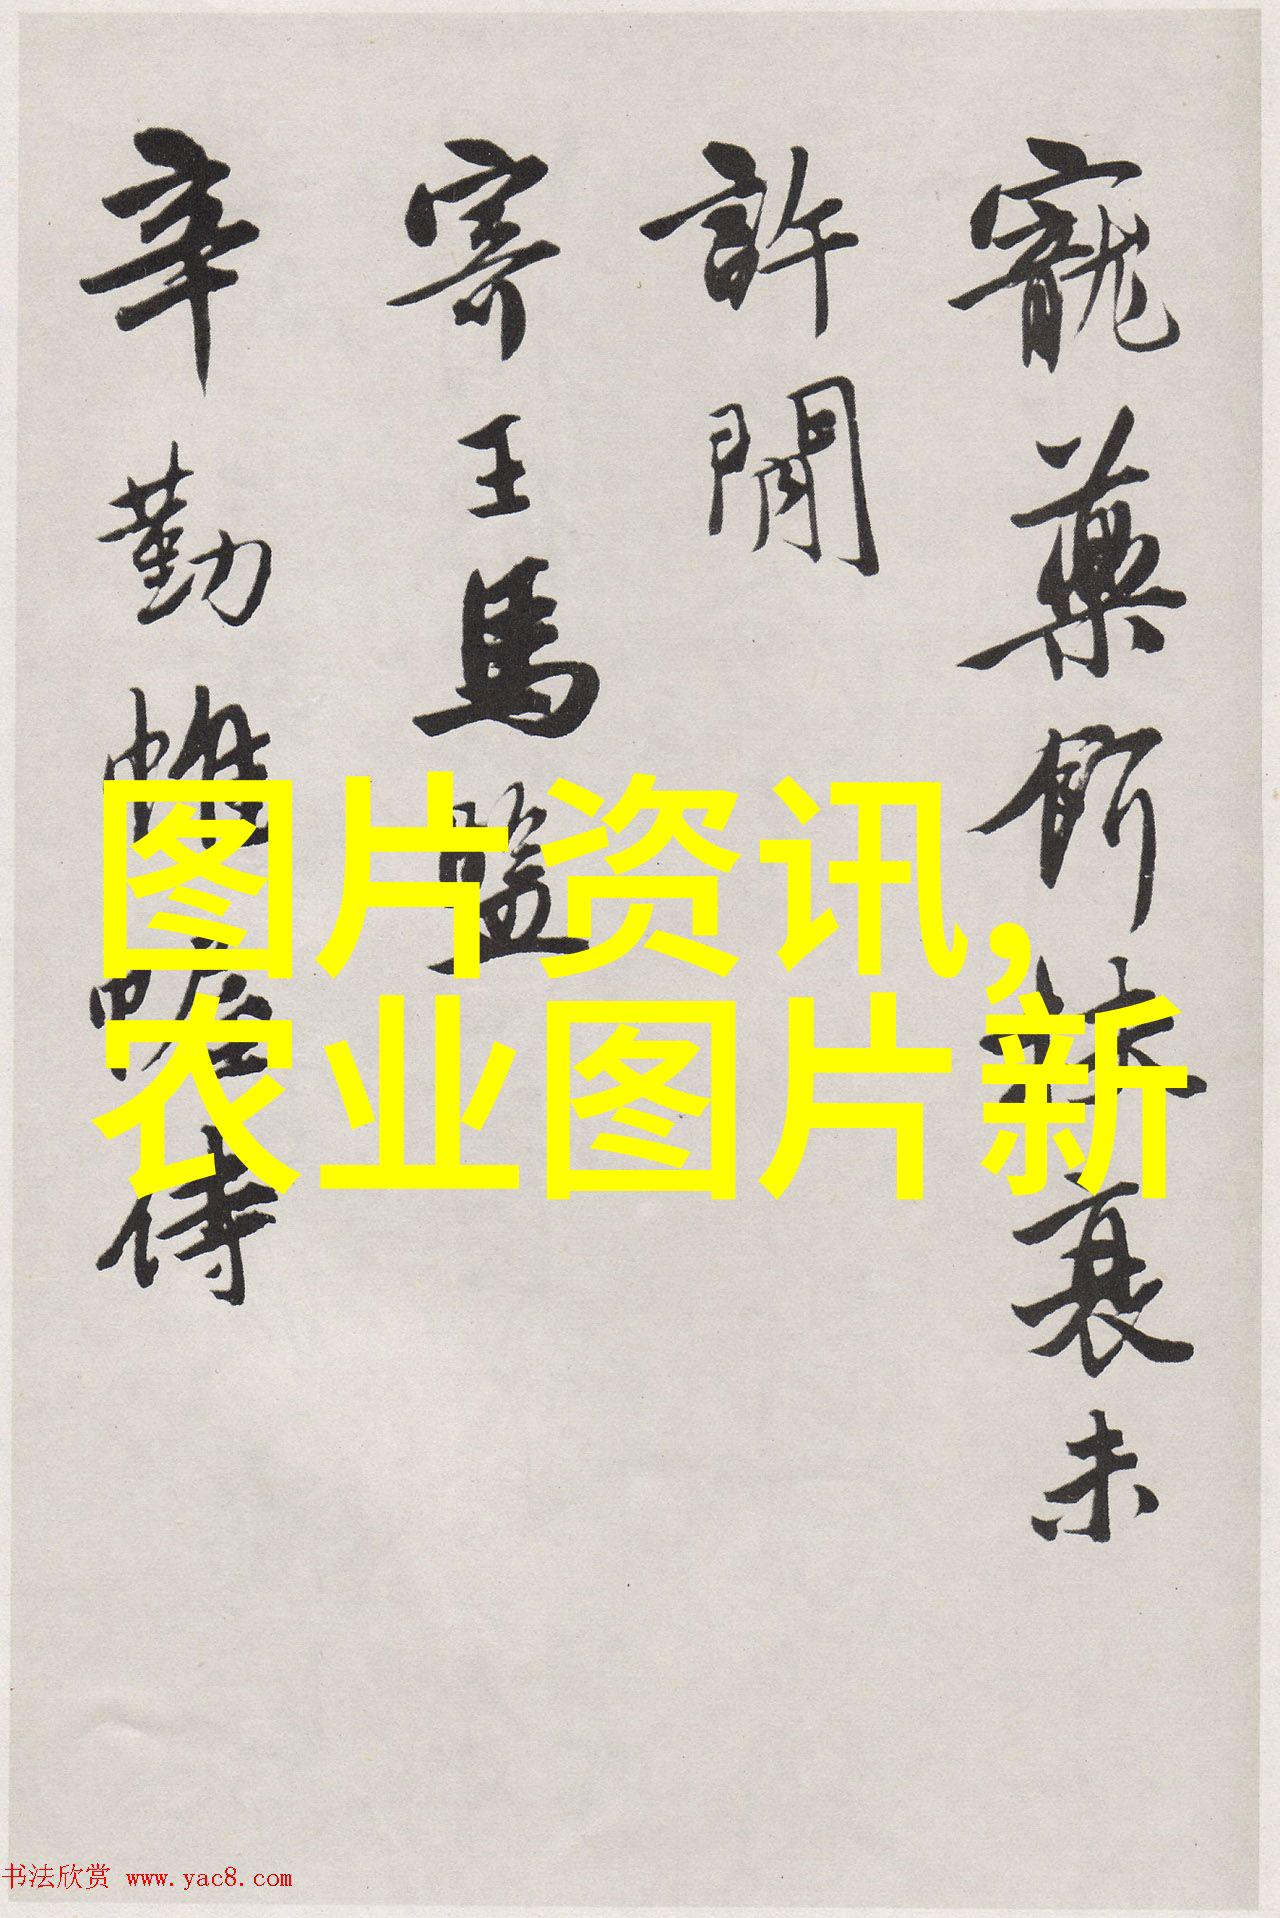 寵藥餌扶衰未
許閒
寄王馬監
辛勤帷幄侍
图片资讯,
农业图片新
书法欣赏 www.yac8.com